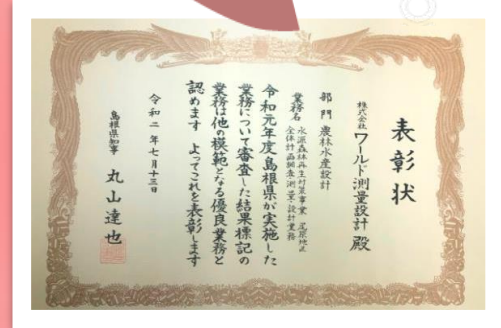 表彰状
株式会社 ワールド測量設計 殿
部門 農林水産設計
業務名 水源森林再生対策事業 尾原地区
全体計画調査測量・設計業務
令和元年度島根県が実施した
業務について審査した結果標記の
業務は他の模範となる優良業務と
認めます よってこれを表彰します
令和二年七月十三日
島根県知事 丸山達也